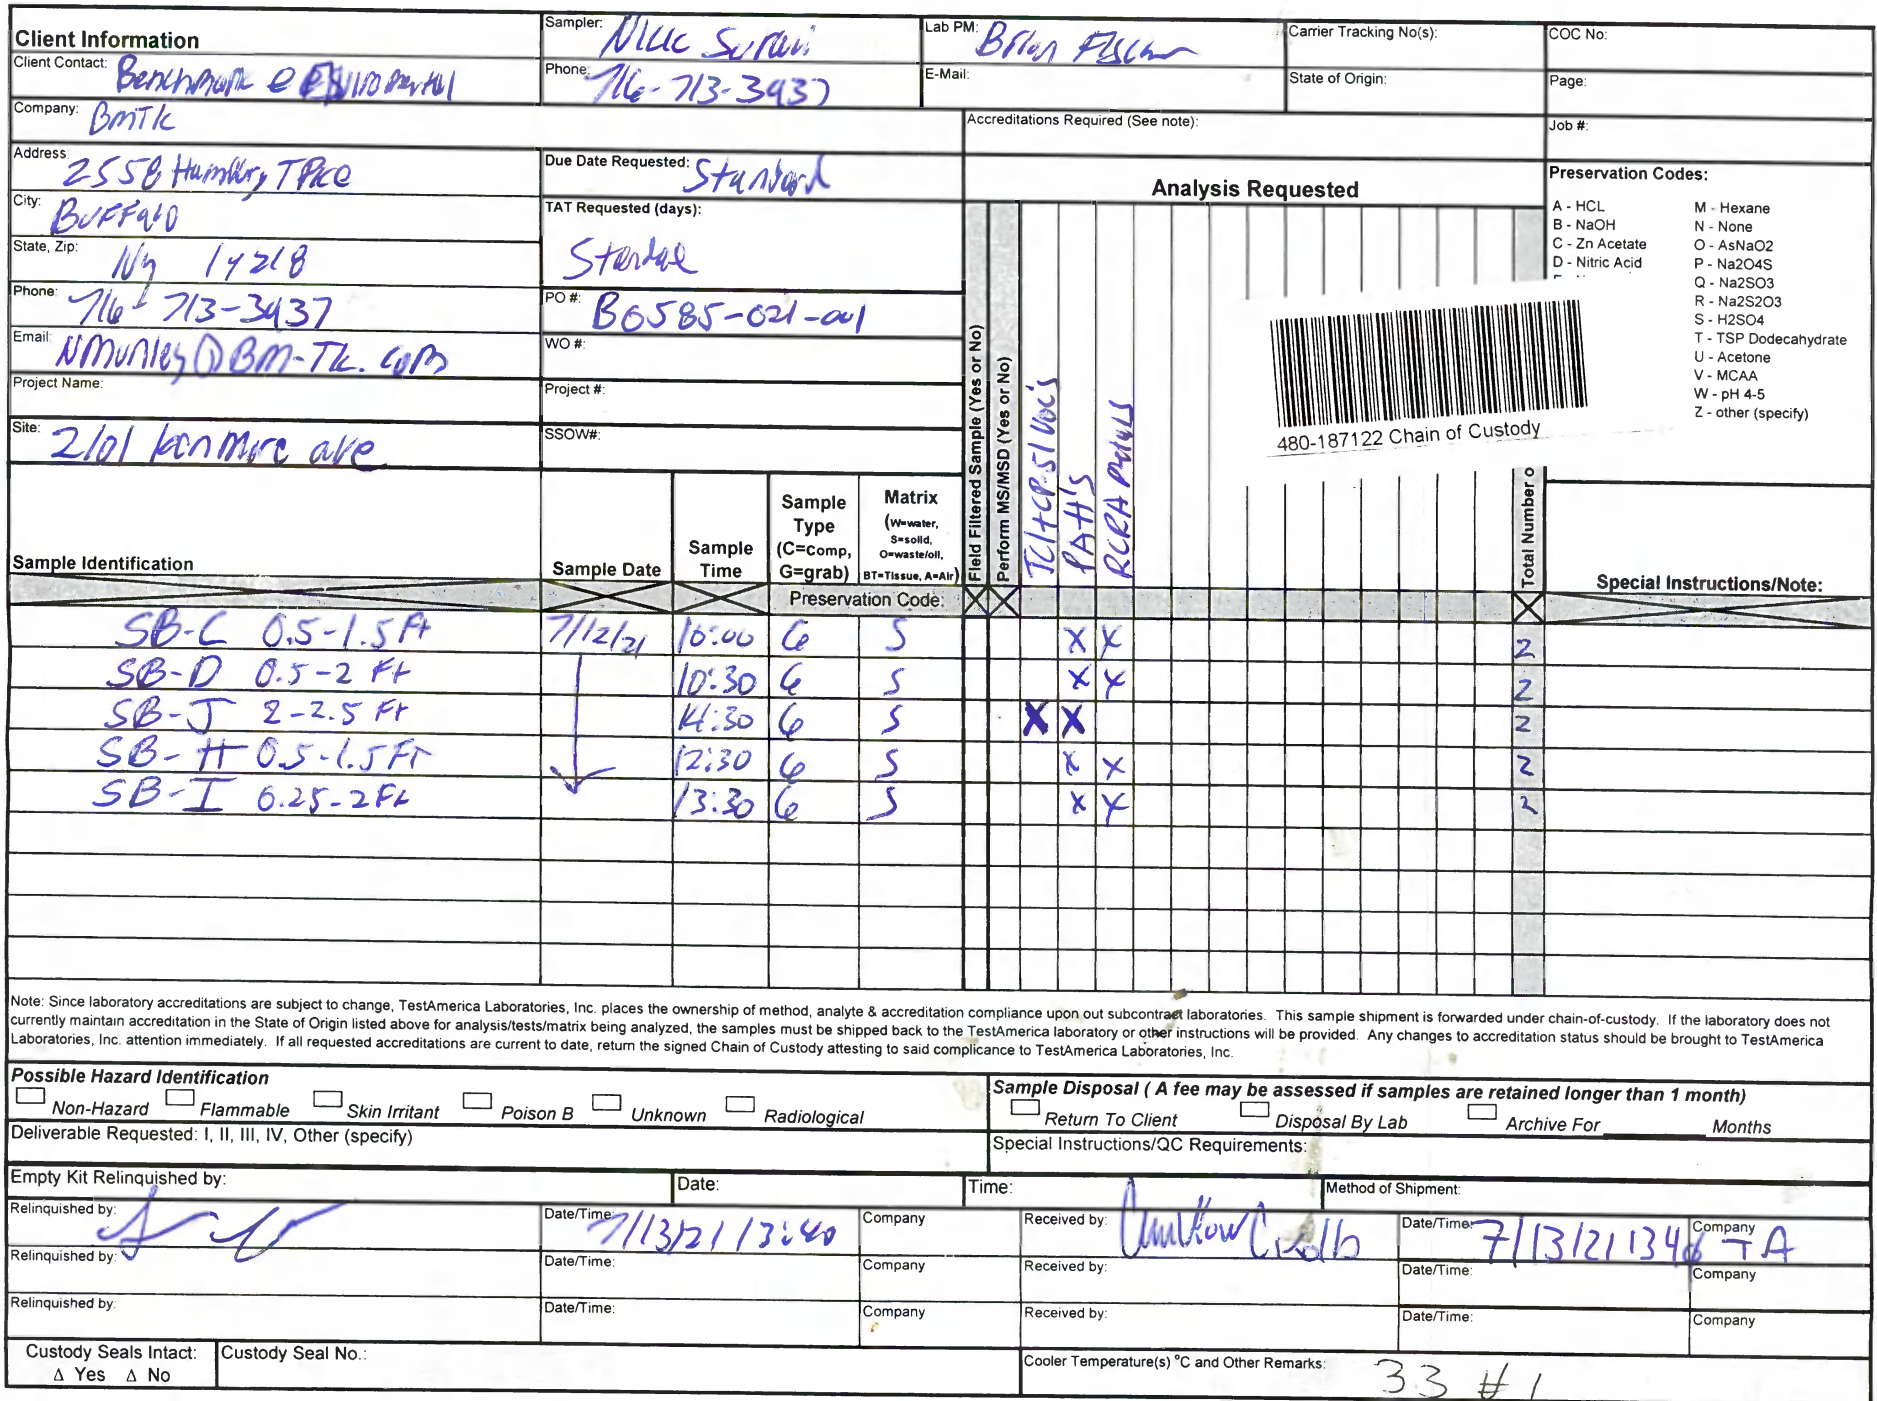 Client Information
Sampler:
Lab PM: Brian
Carrier Tracking No(s):
COC No:
Client Contact: Benchmark
Phone: 716-713-3937
E-Mail:
State of Origin:
Page:
Company: BmTk
Accreditations Required (See note):
Job #:
Address: 2558 Hamburg TPke
Due Date Requested: Standard
Analysis Requested
Preservation Codes:
A - HCL
B - NaOH
C - Zn Acetate
D - Nitric Acid
M - Hexane
N - None
O - AsNaO2
P - Na2O4S
Q - Na2SO3
R - Na2S2O3
S - H2SO4
T - TSP Dodecahydrate
U - Acetone
V - MCAA
W - pH 4-5
Z - other (specify)
City: Buffalo
TAT Requested (days):
State, Zip: Ny 14218
Phone: 716-713-3937
PO #: B0585-021-001
Email: NMunley@BM-Tk.com
WO #:
Project Name:
Project #:
Site: 2101 kenmore ave
SSOW#:
480-187122 Chain of Custody
Sample Identification
Sample Date
Sample Time
Sample Type (C=comp, G=grab)
Matrix (W=water, S=solid, O=waste/oil, BT=Tissue, A=Air)
Field Filtered Sample (Yes or No)
Perform MS/MSD (Yes or No)
TCL+CP-51 VOC's
PAH's
RCRA Metals
Total Number o
Special Instructions/Note:
Preservation Code:
SB-C 0.5-1.5 Ft 7/12/21 10:00 G S X X 2
SB-D 0.5-2 Ft 10:30 G S X X 2
SB-J 2-2.5 Ft 14:30 G S X X 2
SB-H 0.5-1.5 FT 12:30 G S X X 2
SB-I 0.25-2 Ft 13:30 G S X X 2
Note: Since laboratory accreditations are subject to change, TestAmerica Laboratories, Inc. places the ownership of method, analyte & accreditation compliance upon out subcontract laboratories. This sample shipment is forwarded under chain-of-custody. If the laboratory does not
currently maintain accreditation in the State of Origin listed above for analysis/tests/matrix being analyzed, the samples must be shipped back to the TestAmerica laboratory or other instructions will be provided. Any changes to accreditation status should be brought to TestAmerica
Laboratories, Inc. attention immediately. If all requested accreditations are current to date, return the signed Chain of Custody attesting to said complicance to TestAmerica Laboratories, Inc.
Possible Hazard Identification
Non-Hazard Flammable Skin Irritant Poison B Unknown Radiological
Sample Disposal ( A fee may be assessed if samples are retained longer than 1 month)
Return To Client Disposal By Lab Archive For Months
Deliverable Requested: I, II, III, IV, Other (specify)
Special Instructions/QC Requirements:
Empty Kit Relinquished by:
Date:
Time:
Method of Shipment:
Relinquished by: Date/Time: 7/13/21 13:40 Company Received by: Date/Time: 7/13/21 1346 Company TA
Relinquished by: Date/Time: Company Received by: Date/Time: Company
Relinquished by: Date/Time: Company Received by: Date/Time: Company
Custody Seals Intact:
Δ Yes Δ No
Custody Seal No.:
Cooler Temperature(s) °C and Other Remarks: 3.3 #1